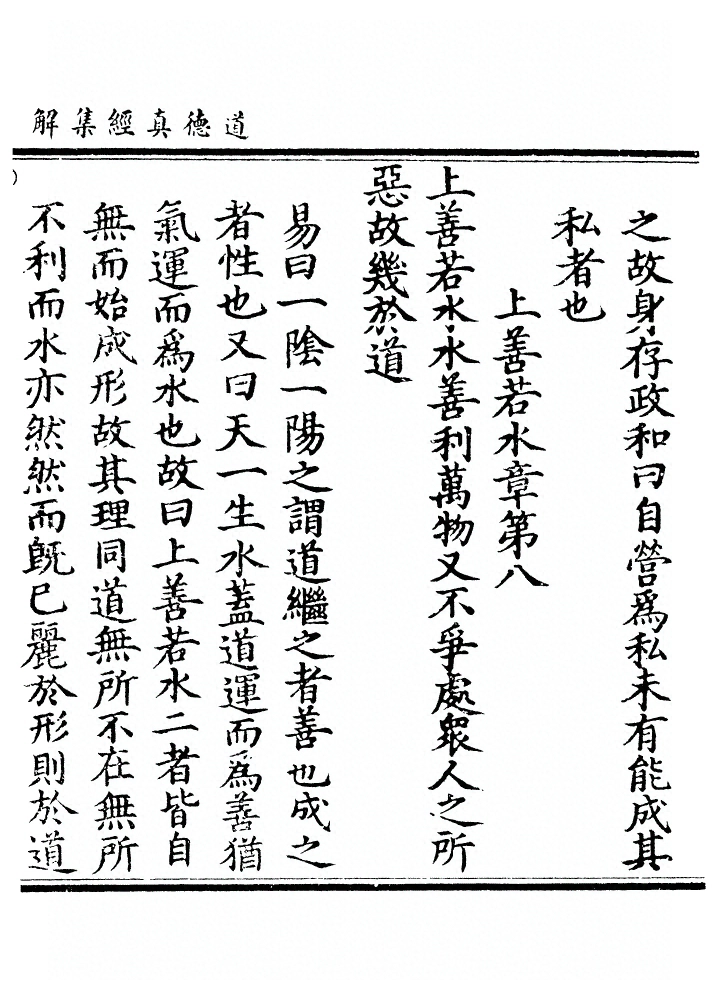 道德真經集解
之故身存政和曰自營爲私未有能成其
私者也
上善若水章第八
上善若水水善利萬物又不爭處衆人之所
惡故幾於道
易曰一陰一陽之謂道繼之者善也成之
者性也又曰天一生水蓋道運而爲善猶
氣運而爲水也故曰上善若水二者皆自
無而始成形故其理同道無所不在無所
不利而水亦然然而旣已麗於形則於道